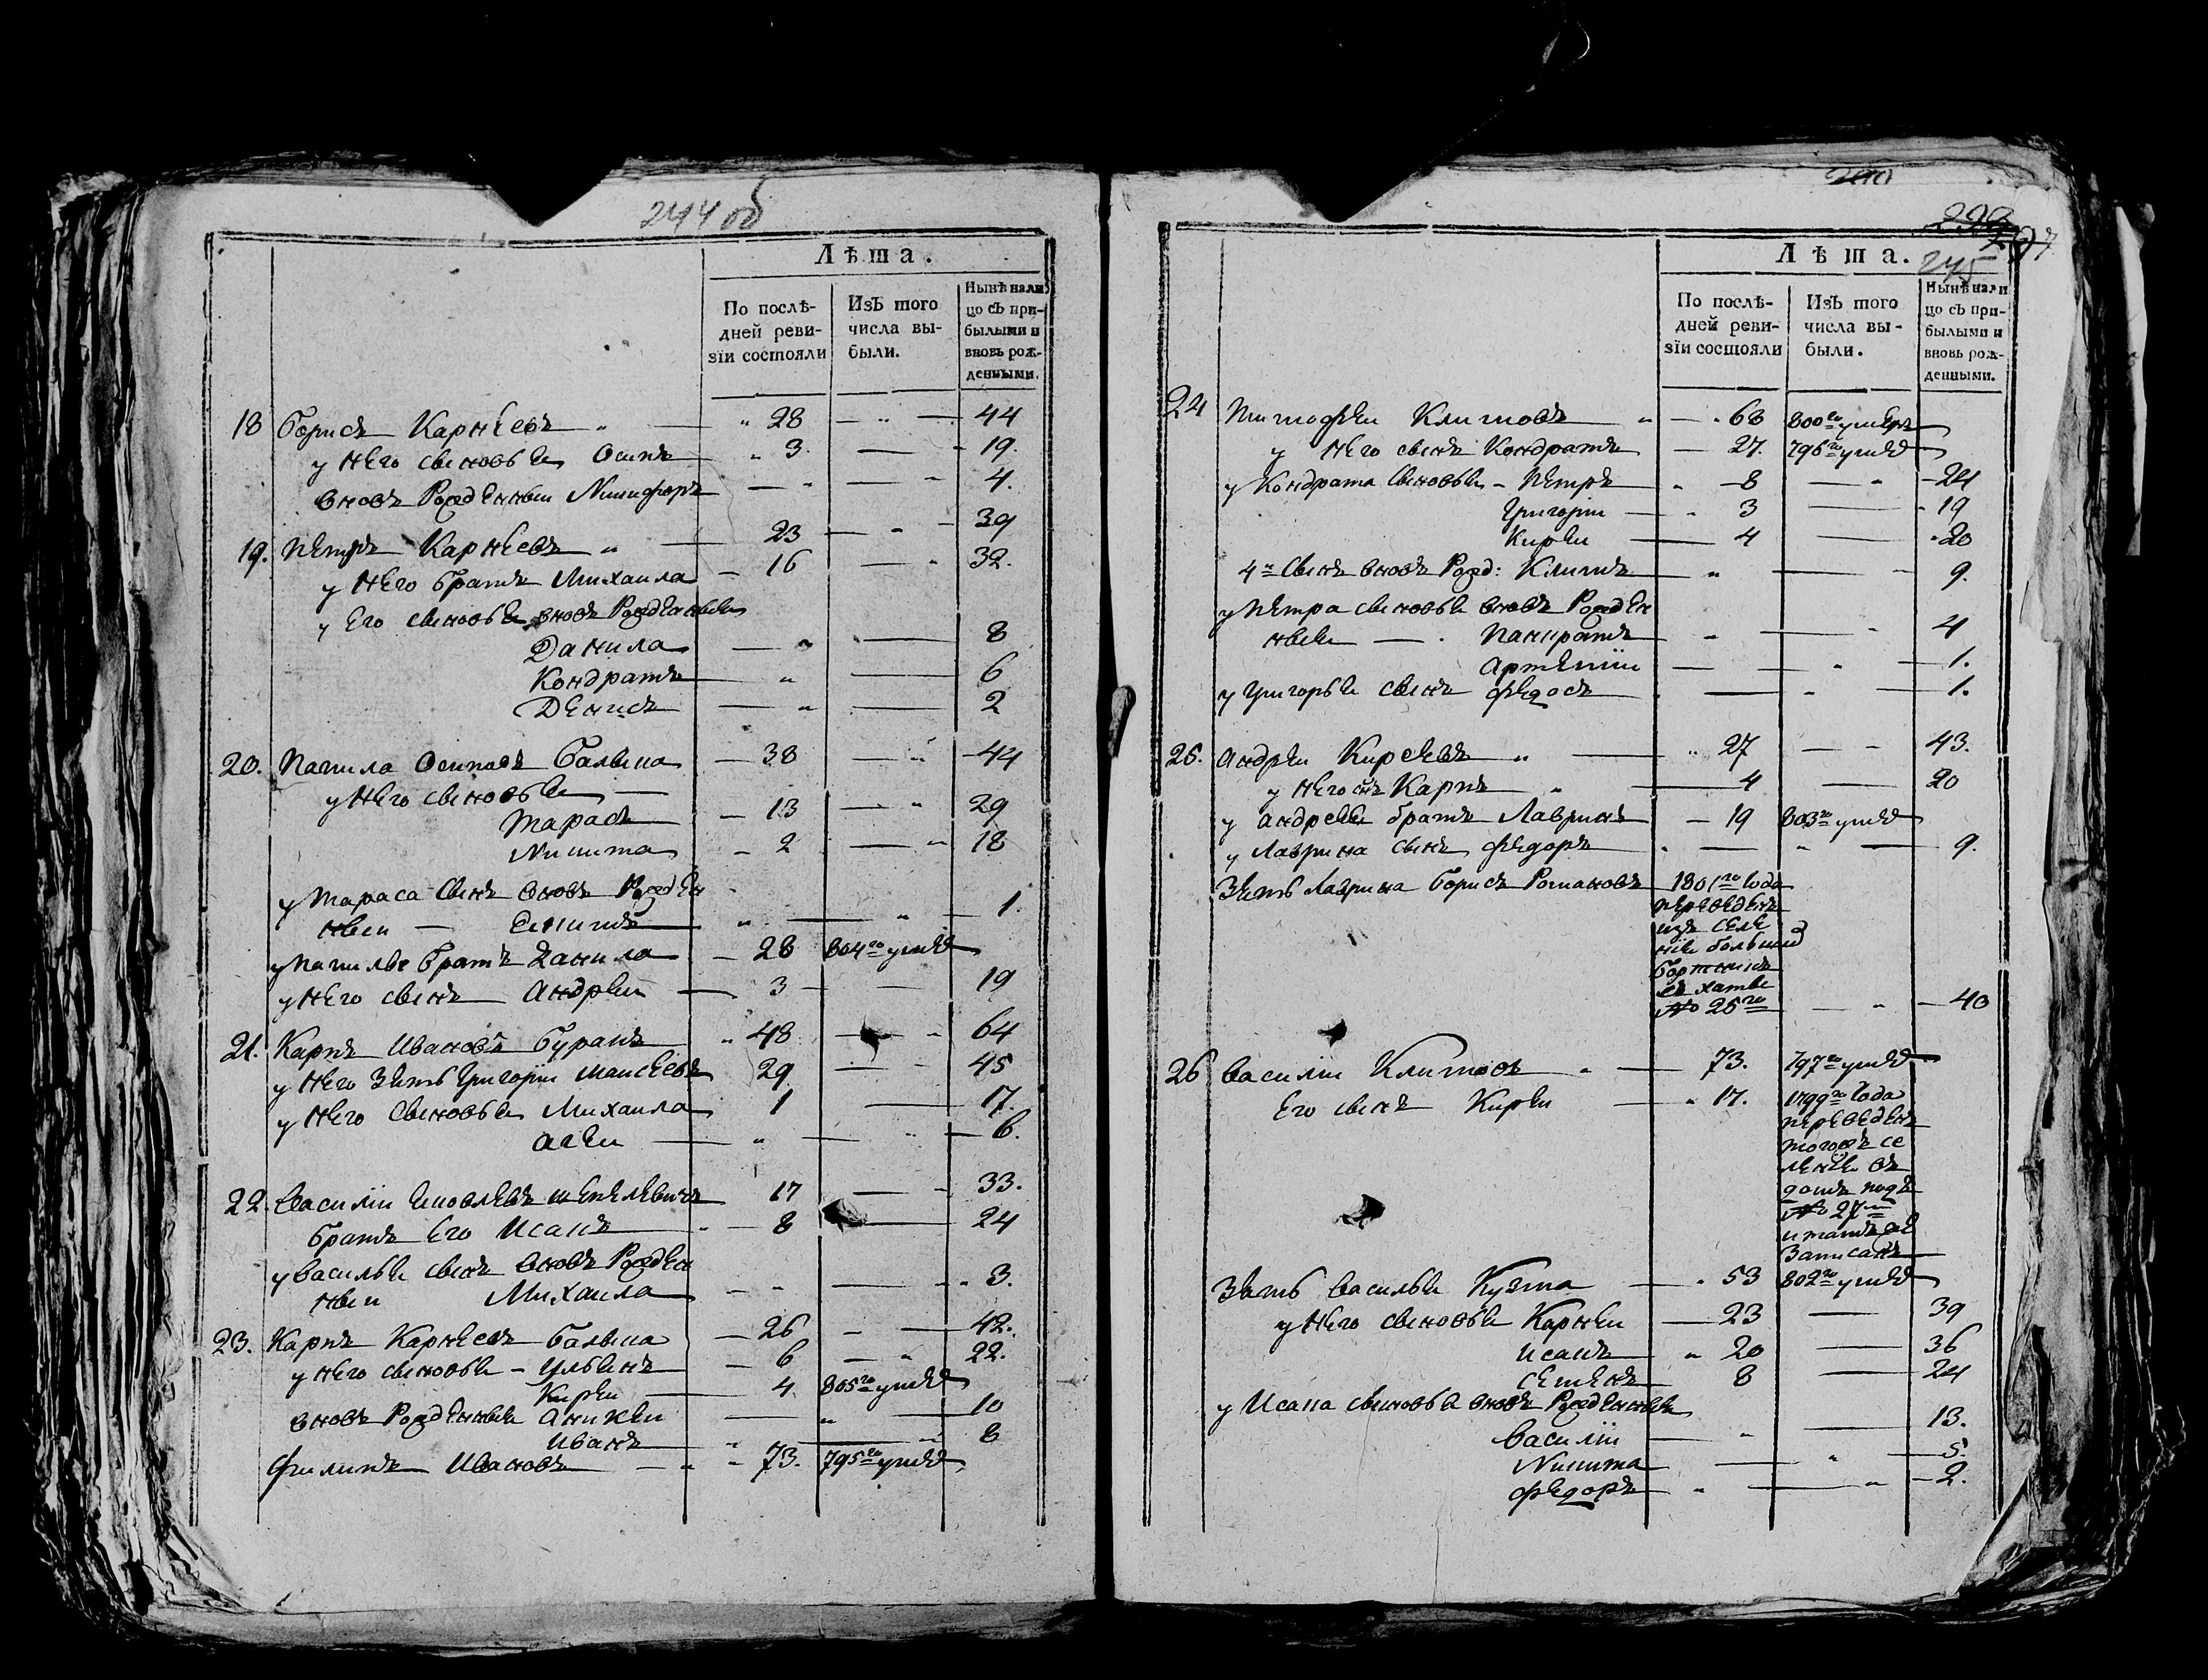 244 об
Лѣта.
По послѣ-
дней реви-
зіи состояли
Изъ того
числа вы-
были.
Нынѣ нали
цо съ при-
былыми и
вновь рож-
денными.
18 Борисъ Карнѣевъ " 28 — " — 44
у него сыновьи Осипъ " 3. — 19.
вновь рожденныи Никифоръ — " — " 4.
19. Петръ Карнѣевъ " — 23 — " — 39
у него братъ Михаила — 16 — " 32.
у его сыновьи вновь рожденныи
Данила — " — 8
Кондратъ — " — 6
Денисъ — " — 2
20. Осиповъ — 38 — " — 44
у него сыновьи —
Тарасъ — 13 — " 29
Никита — 2 — " 18
у Тараса сынъ вновь рожден
ныи — " — " — 1.
братъ Данила — 28 804го умре
у него сынъ Андреи — 3 — 19
21. Карпъ Ивановъ " 48 — " 64
у него зять Григории Маисеевъ 29 — 45
у него сыновьи Михаила 1 — 17.
Агеи — " — " — 6.
22. Василіи 17 — 33.
братъ его Исакъ " — 8 — 24
у Василья сынъ вновь рожден
ныи Михаила — " — " 3.
23. Карпъ Карнѣевъ — 26 — 42.
у него сыновьи — Ульянъ — 6 — " 22.
Киреи — 4 805го умре
вновь рожденныи Аникеи — " — 10
Иванъ " — " 8
Филипъ Ивановъ — " — 73. 795го умре
200
245
Лѣта.
По послѣ-
дней реви-
зіи состояли
Изъ того
числа вы-
были.
Нынѣ нали
цо съ при-
былыми и
вновь рож-
денными.
24 Тимофеи Климовъ " — " 68 800го умеръ
у него сынъ Кондратъ — 27. 796го умре
у Кондрата сыновьи — Петръ " — 8 — " — 24
Григории — " 3 — " 19
Киреи — 4 — " 20
4й сынъ вновь рожд: Климъ " — 9.
у Петра сыновьи вновь рожден
ныи — . Панкратъ " — " 4
Артеміи — " — 1.
у Григорьи сынъ Федосъ — " — 1.
25. Андреи Киреевъ " — " 27 — " 43.
у него сынъ Карпъ " — 4 — 20
у Андреи братъ Лавринъ — 19 803го умре
у Лаврина сынъ Федоръ — " — 9.
Зять Лаврина Борисъ Романовъ 1801го года
переведенъ
изъ селе
ніи большой
съ хаты
№ 25го — " — 40
26 Василіи Климовъ " — 73. 797го умре
его сынъ Киреи — " 17. 1799го года
переведенъ
тогожъ се
леніи въ
домъ подъ
№ 27м
и тамъ же
записанъ
Зять Васильи Кузма — " 53 802го умре
у него сыновьи Карнеи — 23 — 39
Исакъ " 20 — 36
Семенъ 8 — 24
у Исака сыновьи вновь рожденныи
Василіи — " — 13.
Никита — " — 5.
Федоръ " — " — 2.